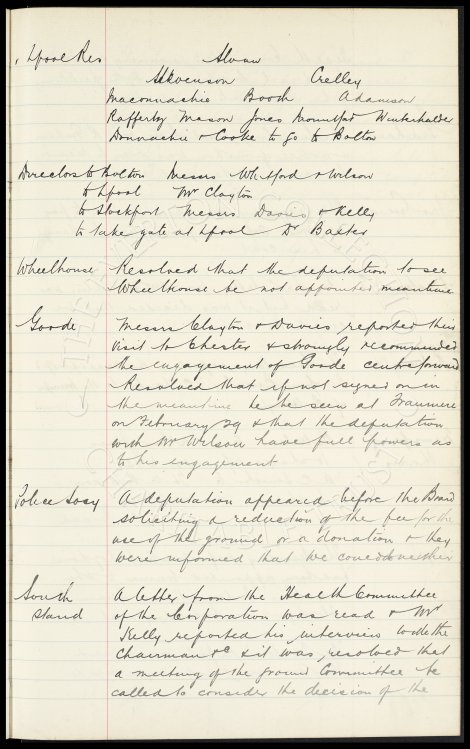 Lpool Res Sloan
Stevenson Crelley
Maconnachie Booth Adamson
Rafferty Mason Jones Mountford Winterhalder
Donnachie & Cooke to go to Bolton
Directors to Bolton Messrs Whitford & Wilson
to Lpool Mr Clayton
to Stockport Messrs Davies & Kelly
to take gate at Lpool Dr Baxter
Wheelhouse Resolved that the deputation to see
Wheelhouse be not appointed meantime
Goode Messrs Clayton & Davies reported their
visit to Chester & strongly recommended
the engagement of Goode centreforward
Resolved that if not signed on in
the meantime he be seen at Tranmere
on February 29 & that the deputation
with Mr Wilson have full powers as
to his engagement
Police Socy A deputation appeared before the Board
soliciting a reduction of the fee for the
use of the ground or a donation & they
were informed that we could do neither
South A letter from the Health Committee
stand of the Corporation was read & Mr
Kelly reported his interview with the
Chairman &c & it was resolved that
a meeting of the ground Committee be
called to consider the decision of the